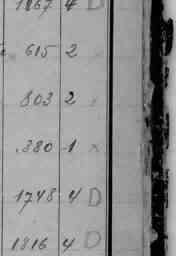 1867 4 D
615 2
803 2
380 1 x
1748 4 D
1816 4 D